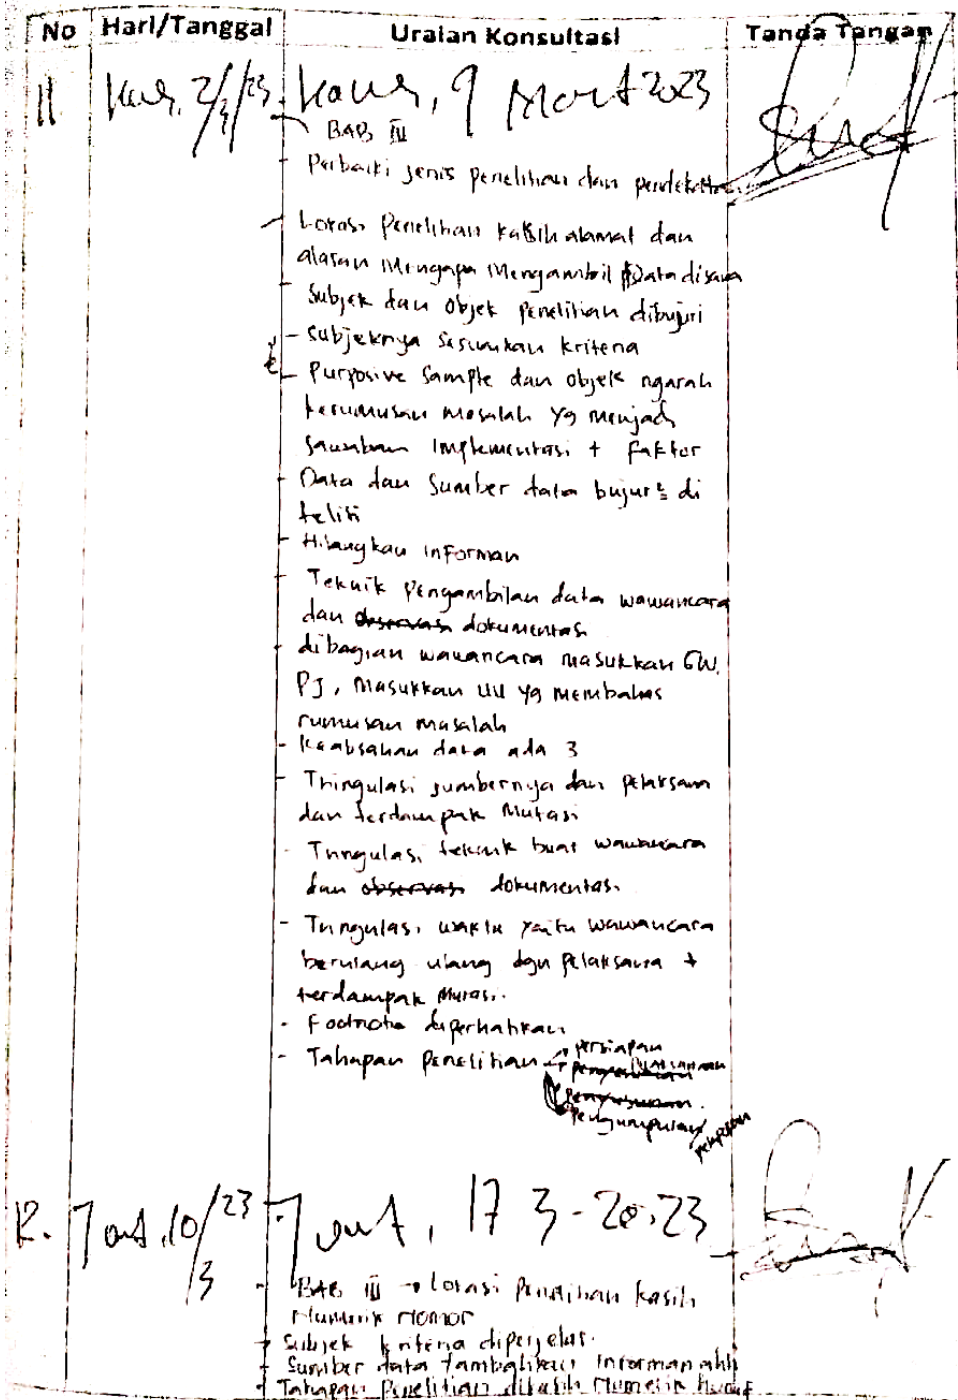 No Hari/Tanggal Uraian Konsultasi Tanda Tangan
11 Kms, 2/3/23 Kamis, 9 Maret 2023
BAB III
- Perbaiki jenis penelitian dan pendekatan
- Lokasi Penelitian kasih alamat dan
alasan Mengapa Mengambil Data disana
- Subjek dan Objek Penelitian dibujuri
- Subjeknya sesuaikan kriteria
- Purposive Sample dan Objek ngarah
kerumusan masalah yg menjadi
Implementasi + Faktor
- Data dan Sumber data bujur2 di
teliti
- Hilangkan informan
- Teknik Pengambilan data wawancara
dan observasi dokumentasi
- dibagian wawancara masukkan GW,
PJ, Masukkan UU yg membahas
rumusan masalah
- Keabsahan data ada 3
- Tringulasi sumbernya dari Pelaksana
dan terdampak Mutasi
- Tringulasi teknik buat wawancara
dan observasi dokumentasi
- Tringulasi waktu yaitu wawancara
berulang ulang dgn pelaksana +
terdampak Mutasi.
- Footnote diperhatikan
- Tahapan Penelitian → persiapan
pelaksanaan
penyusunan
Pengumpulan
12. Jmt, 10/3/23 Jmt, 17 3-2023
- BAB III → Lokasi Penelitian kasih
Numerik Nomor
- Subjek kriteria diperjelas.
- Sumber data tambahkan Informan ahli
- Tahapan Penelitian dikasih Numerik Huruf